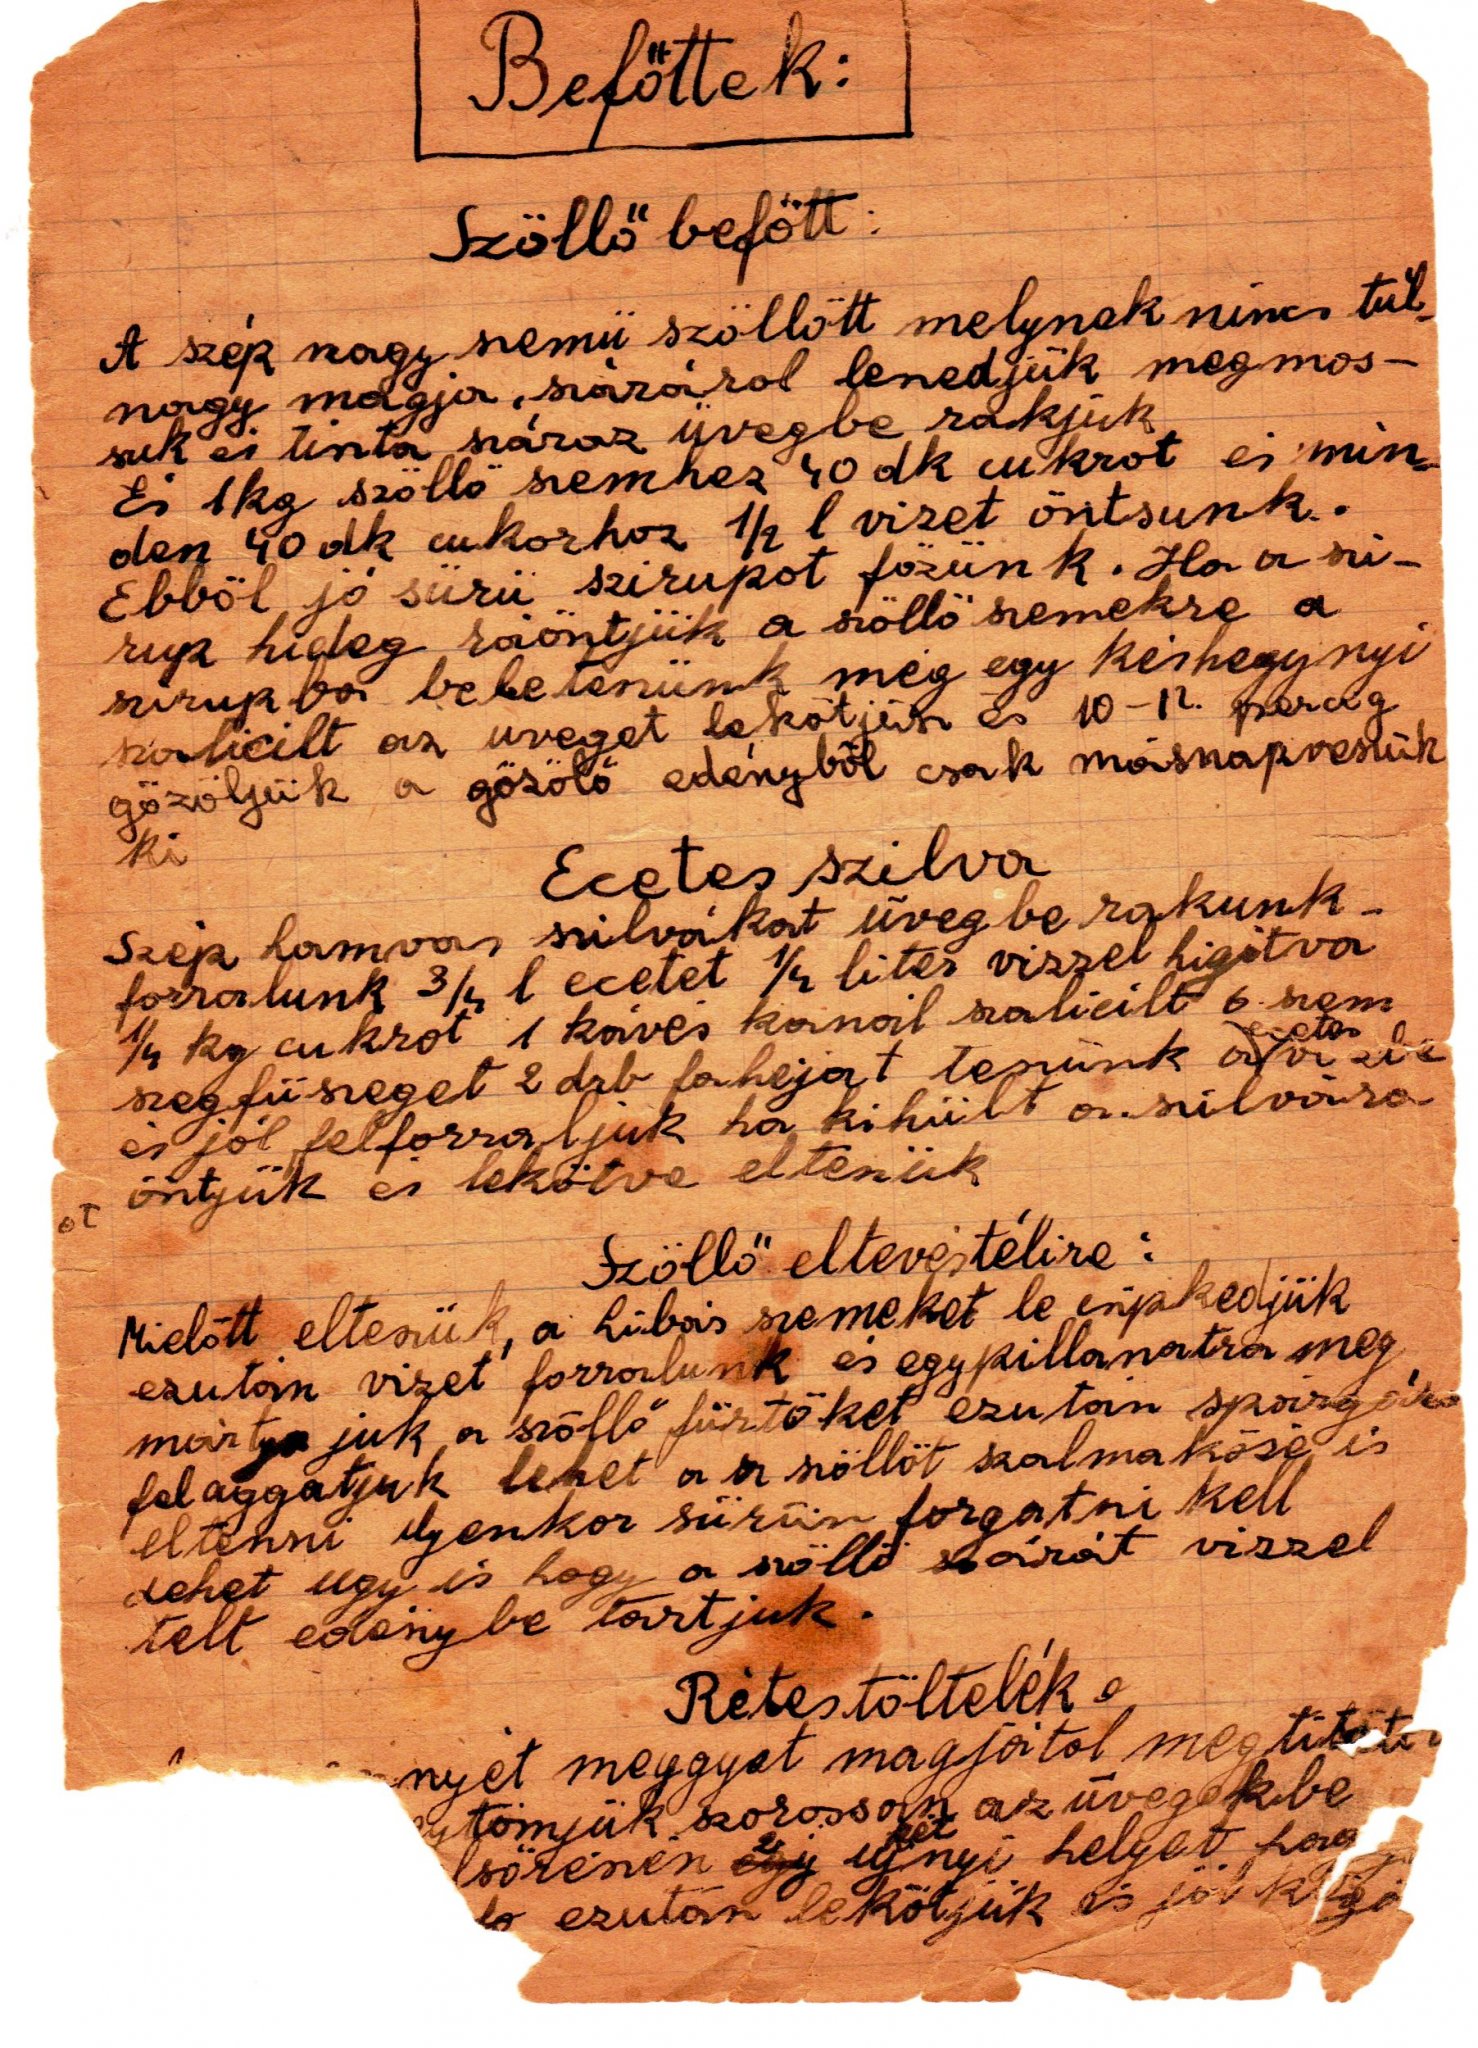 Befőttek:
Szöllő befőtt:
A szép nagy szemü szöllőtt melynek nincs túl-
nagy magja, száráról leszedjük megmos-
suk és tiszta száraz üvegbe rakjuk
És 1 kg szöllő szemhez 40 dk cukrot és min-
den 40 dk cukorhoz 1/2 l vizet öntsunk.
Ebből jó sürü szirupot főzünk. Ha a szi-
rup hideg ráöntjük a szöllő szemekre a
szirupba beletenünk még egy késhegynyi
szalicilt az üveget lekötjük és 10-12. percig
gőzöljük a gőzölő edényből csak másnap veszük
ki
Ecetes szilva
Szép hamvas szilvákat üvegbe rakunk-
forralunk 3/4 l ecetet 1/4 liter vizzel higítva
1/4 kg cukrot 1 kávés kanál szalicilt 6 szem
szegfüszeget 2 drb fahejat teszünk a ecetes vizbe
és jól felforraljuk ha kihült a szilvára
öntjük és lekötve elteszük
ot
Szöllő eltevés télire:
Mielőtt elteszük, a hibás szemeket le csipkedjük
ezután vizet forralunk és egypillanatra meg
mártjuk a szöllő fürtöket ezután spárgára
felaggatjuk lehet a szöllőt szalmaközé is
eltenni ilyenkor sürün forgatni kell
Lehet ugy is hogy a szöllő szárát vizzel
telt edénybe tartjuk.
Rétes töltelék
nyét meggyet magjáitol megtisztit
tömjük szorossan az üvegekbe
lsőrészén két ujnyi helyet hag
ezután lekötjük és jól kigő